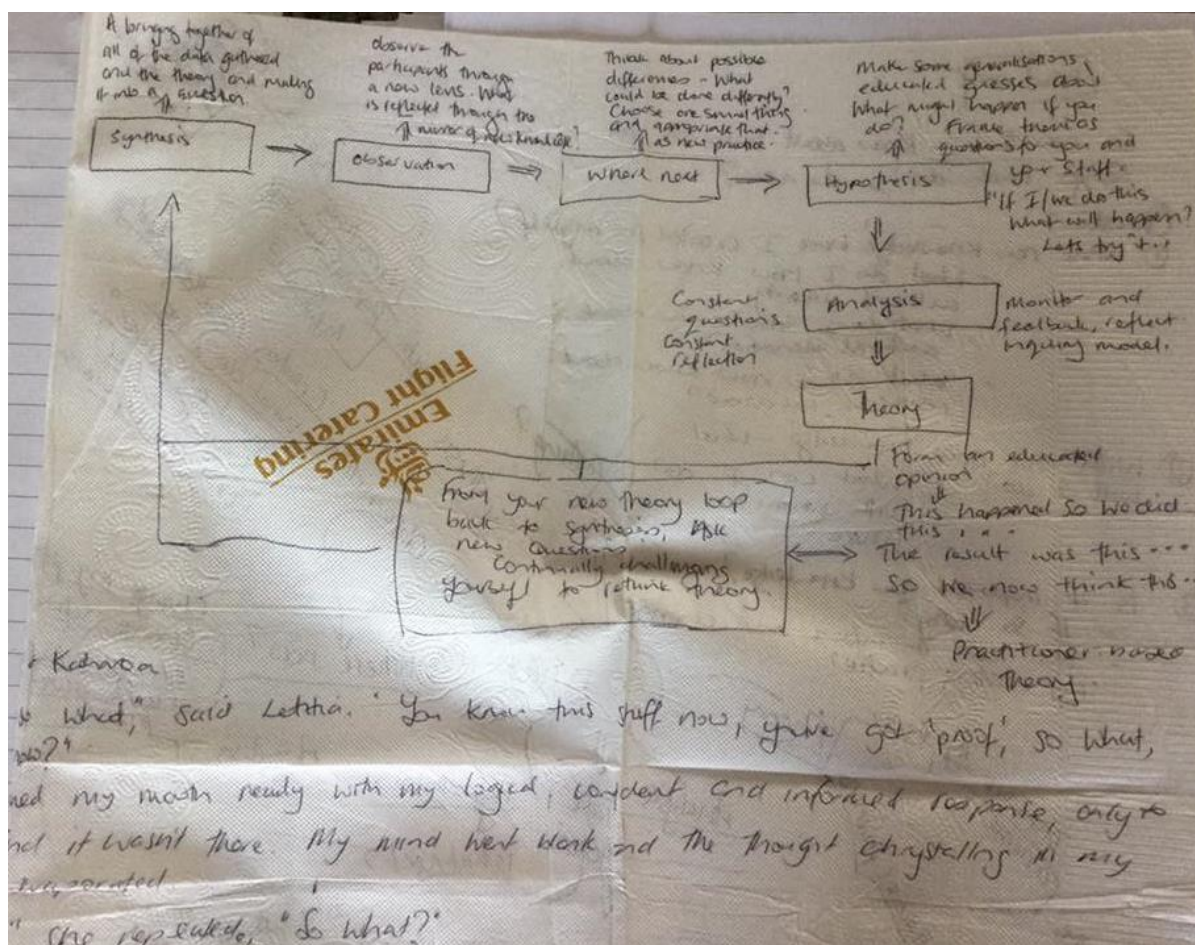 A bringing together of
all of the data gathered
and the theory and making
it into a question
Synthesis
observe the
participants through
a new lens. What
is reflected through the
mirror of new knowledge?
Observation
Think about possible
differences - What
could be done differently?
Choose one small thing
and appropriate that
as new practice.
What next
Make some generalisations,
educated guesses about
What might happen if you
do? Frame them as
questions for you and
your staff.
"If I/we do this
What will happen?
Lets try it...
Hypothesis
Constant
questions
Constant
reflection
Analysis
Monitor and
feedback, reflect
inquiry model.
Theory
Form an educated
opinion
This happened so we did
this
The result was this...
So we now think this..
Practitioner based
Theory
Emirates
Flight Catering
From your new Theory loop
back to synthesis, Ask
new Questions
Continually challenging
yourself to rethink theory.
what," said Letitia. "You know this stuff now, you've got 'proof', so what,
my mouth ready with my logical, confident and informed response, only to
it wasn't there. My mind went blank and the thought chrystalling in my
she repeated, "So what?"